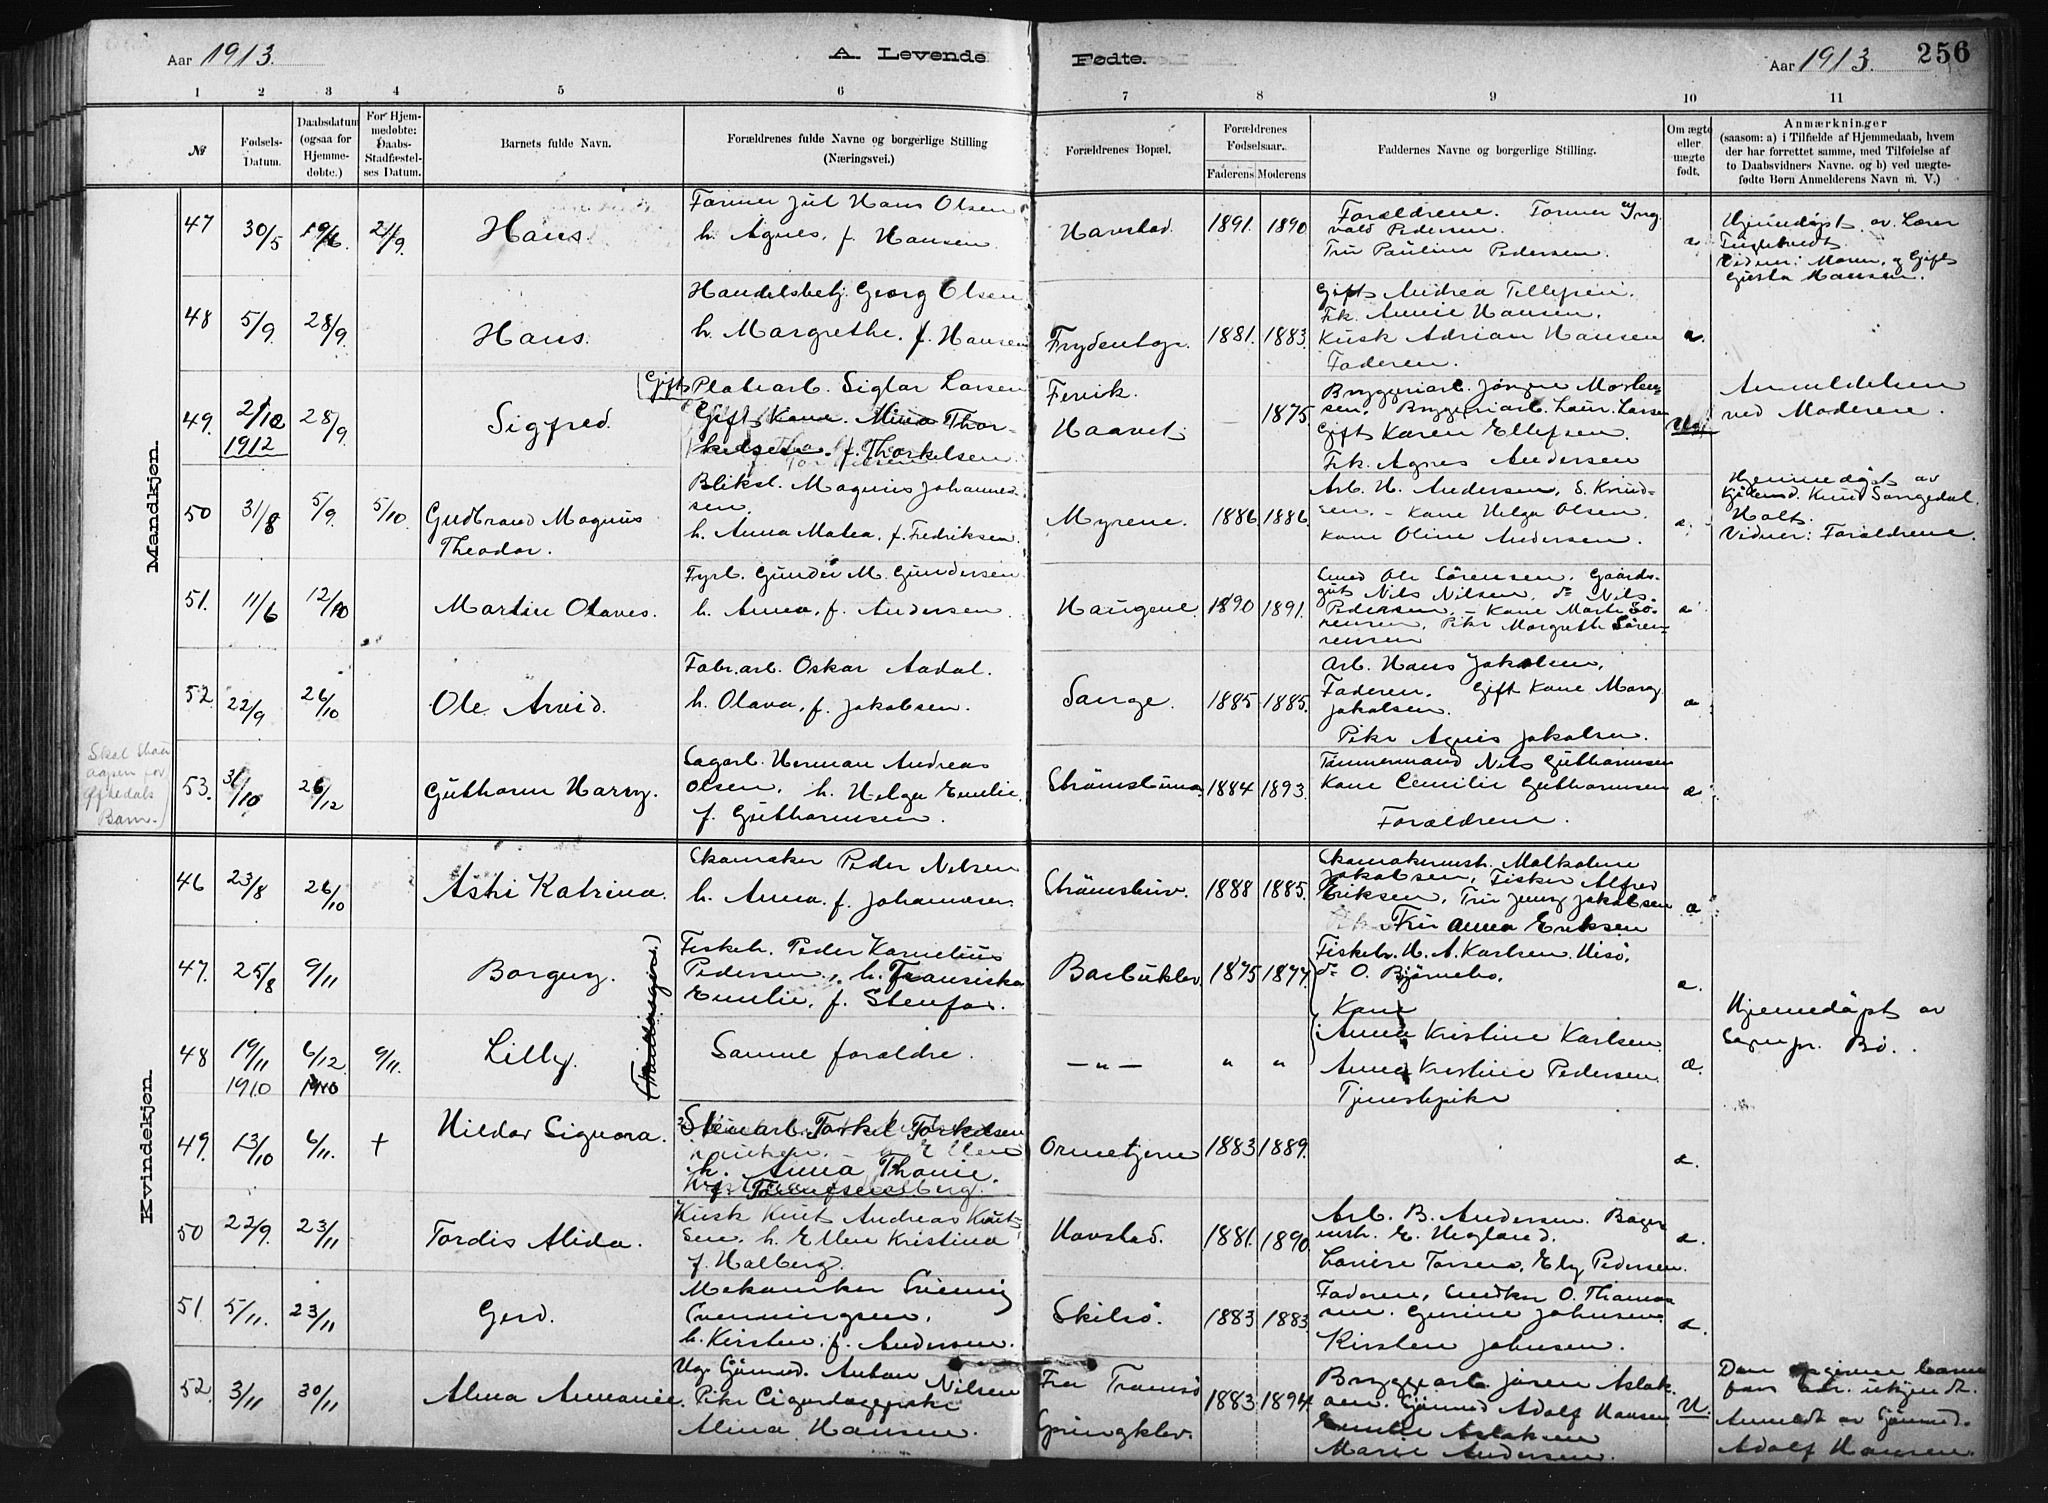 Aar 1913.
A. Levende Fødte.
Aar 1913.
256
1 2 3 4 5 6 7 8 9 10 11
№
Fødsels-Datum.
Daabsdatum (ogsaa for Hjemme-døbte.)
For Hjem-medøbte: Daabs-Stadfæstel-ses Datum.
Barnets fulde Navn.
Forældrenes fulde Navne og borgerlige Stilling (Næringsvei.)
Forældrenes Bopæl.
Forældrenes Fødselsaar.
Faderens Moderens
Faddernes Navne og borgerlige Stilling.
Om ægte eller uægte født.
Anmærkninger
(saasom: a) i Tilfælde af Hjemmedaab, hvem
der har forrettet samme, med Tilføielse af
to Daabsvidners Navne. og b) ved uægte-
fødte Børn Anmelderens Navn m. V.)
Mandkjøn.
47 30/5 21/9. Hans.
Hans Olsen
h. Agnes, f. Hansen.
Havstad. 1891. 1890
Forældrene.
vald Pedersen.
Fru Pauline Pedersen.
æ
Hjemmedøpt av Lærer
Vidner: Moren, og Gift
Gusta Hansen.
48 5/9. 28/9 Hans.
Handelsbetj. Georg Olsen
h. Margrethe. f. Hansen
1881. 1883.
Gift Andrea Tellefsen.
Frk. Annie Hansen,
Kusk Adrian Hansen
Faderen.
æ.
49. 2/10 1912 28/9 Sigfred.
Gift Platearb. Larsen
Gift Kone. Mina Thor-
kelsen f. Thorkelsen.
Fevik.
— 1875
Bryggeriarb. Laur. Larsen
Gift Karen Ellefsen.
Frk. Agnes Andersen
Anmeldelsen
ved Moderene.
50 31/8 5/9 5/10. Gudbrand Magnus
Theodor.
Bliksl. Magnus Johannes-
sen.
h. Anna Matea, f. Fredriksen.
Myrene. 1886 1886
Arb. H. Andersen, S. Knud-
sen. – Kone Helga Olsen.
Kone Oline Andersen.
æ.
Hjemmedøpt av
Holt.
Vidner: Forældrene.
51. 11/6 12/10 Martin Olaves.
Fyrb. Gunder M. Gundersen
h. Anna, f. Andersen.
Haugene. 1890 1891.
Smed Ole Sørensen, Gaards-
gut Nils Nilsen, do Nils
Pedersen, – Kone Marte Sø-
rensen, Pike Margreth Søren-
rensen
æ
52 22/9 26/10 Ole Arvid.
Fabr.arb. Oskar Aadal.
h. Olava, f. Jakobsen.
Sange. 1885 1885.
Arb. Hans Jakobsen,
Faderen, Gift Kone Marg.
Jakobsen.
Pike Agnes Jakobsen.
æ
Skal
Barn.
53. 31/10 26/12 Guthorm Harry.
Sagarb. Herman Andreas
Olsen, h. Helga Emilie,
f. Guthormsen.
1884 1893.
Tømmermand Nils Guthormsen
Kone Cemilie Guthormsen
Forældrene.
æ
Kvindekjøn.
46 23/8 26/10 Astri Katrina.
Skomaker Peder Nilsen
h. Anna f. Johannesen
Strømsbuv. 1888 1885.
Skomakermstr. Malkolm
Jakobsen, Fisker Alfred
Eriksen, Fru Jenny Jakobsen
Fru Anna Eriksen
æ
47. 25/8 9/11 Borguy.
(Trillinger.)
Fiskeh. Peder Kornelius
Pedersen, h. Fransiska
Emilie, f. Stenfos.
Barbuklev. 1875 1877.
Fiskeh. H. A. Karlsen Hisø,
do O. Bjørnebo,
Kone
æ.
48 19/11 1910 6/12 1910 9/11. Lilly.
Samme forældre.
—„— „ „
Anna Kristine Karlsen
Anna Kristine Pedersen.
Tjenstepike
æ.
Hjemmedøpt av
Sognepr. Bø.
49. 13/10 6/11. + Hildor Signora.
Stenarb. Torkel Torkelsen
h. Anna Thonie.
1883 1889.
æ.
50 22/9. 23/11 Tordis Alida.
Kusk Knut Andreas Knut-
sen, h. Ellen Kristina
f. Halberg.
Havstad. 1881. 1890
Arb. B. Andersen. Bager-
mstr. E. Hegland.
Lovise Torsen, Ely Pedersen.
æ.
51. 5/11. 23/11 Gerd.
Mekaniker Svenning
Svenningsen,
h. Kirsten f. Andersen.
Skilsø. 1883 1883
Faderen, Snedker O. Thomas-
sen. Gurine Johnsen
Kirsten Johnsen.
æ.
52 3/11 30/11 Alma Annanie.
Ug. Sjømd. Anton Nilsen
Pike Cigardagerske
Alma Hansen.
Fra Tromsø
Springklev. 1883 1894
Bryggeriarb. Jøren Aslak-
sen. Sjømd Adolf Hansen
Emilie Aslaksen
Marie Andersen.
U.
Den opgivne barne-
fars adr. ukjendt.
Anmeldt av Sjømd.
Adolf Hansen.